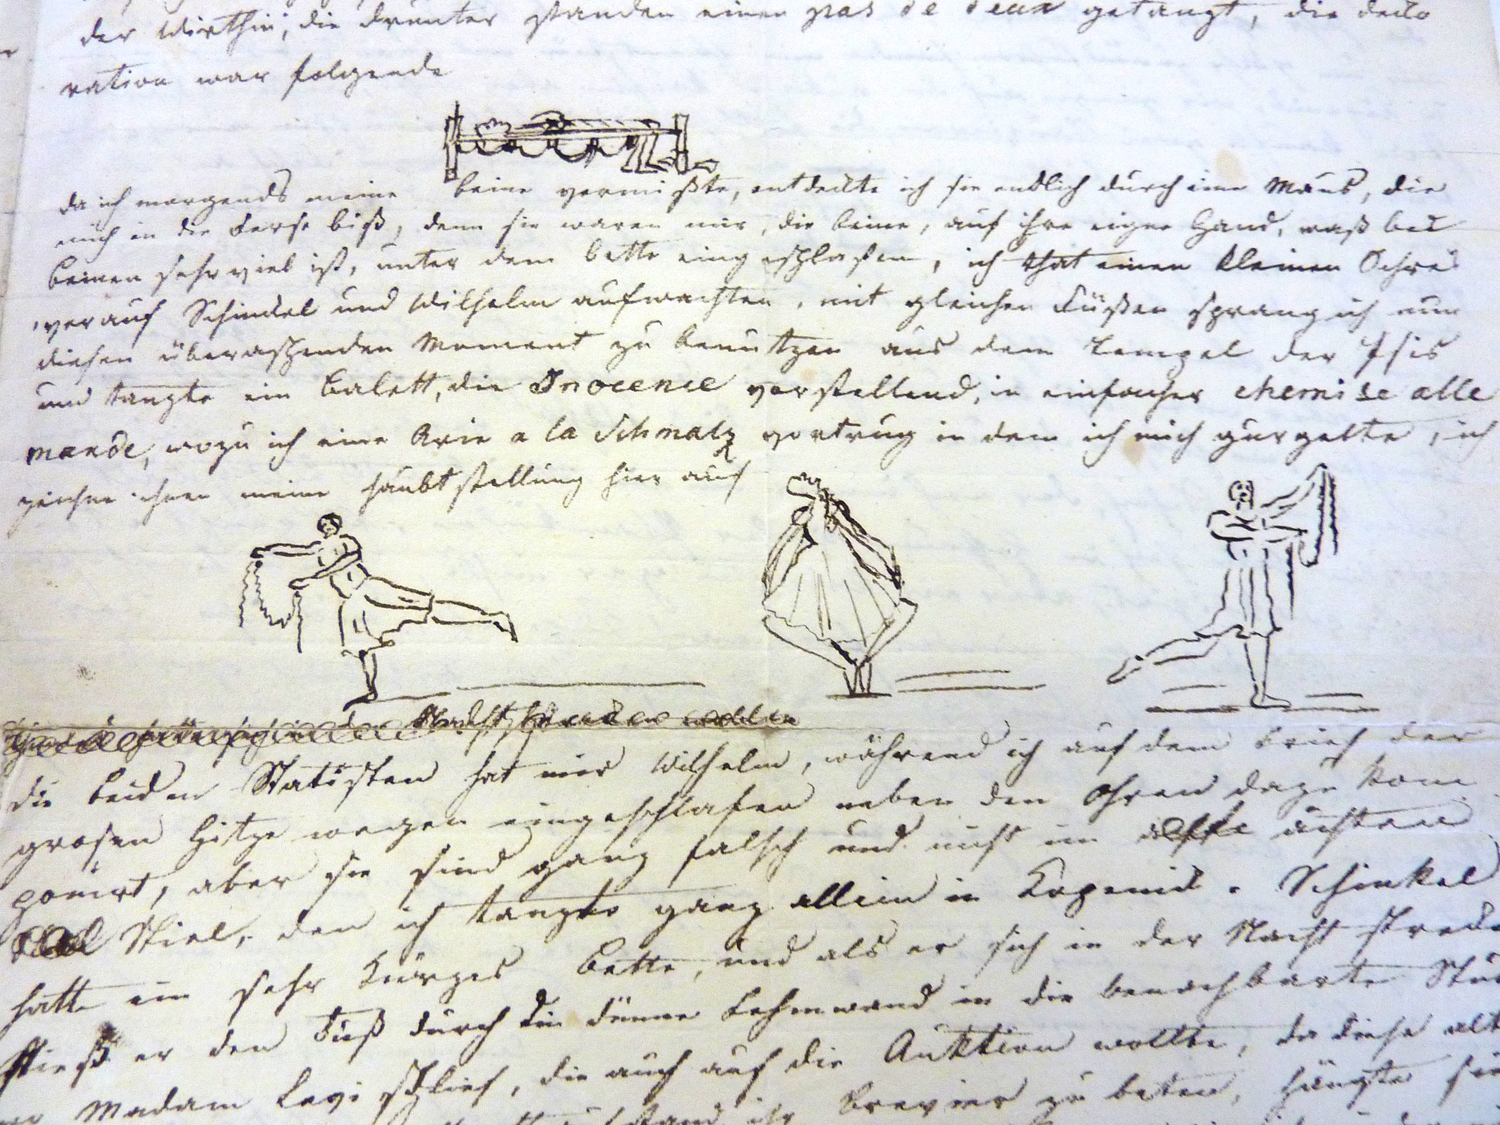 der Wirthin, die drunter standen einen pas de deux getanzt, die deco
ration war folgende
da ich morgends meine beine vermißte, entdeckte ich sie endlich durch eine Maus, die
mich in die Ferse biß, denn sie waren mir, die beine, auf ihre eigne Hand, waß bei
beinen sehr viel ist, unter dem bette eingeschlafen, ich that einen kleinen Schrei
worauf Schinckel und Wilhelm aufwachten, mit gleichen Füßen sprang ich nun
diesen überraschenden Moment zu benutzen aus dem Tempel der Isis
und tanzte ein Balett, die Inocence vorstellend, in einfacher chemise alle
mande, wozu ich eine Arie a la Schmalz vortrug in dem ich mich gurgelte, ich
zeichne ihnen meine haubtstellung hier auf
die beiden Statisten hat mir Wilhelm, während ich auf dem brief der
grosen Hitze wegen eingeschlafen neben den Ohren dazu kom
ponirt, aber sie sind ganz falsch und nicht im ächten
Stiel, den ich tanzte ganz allein in Kopenick. Schinkel
hatte ein sehr kurzes Bette, und als er sich in der Nacht streckte
stieß er den Fuß durch die dünne Lehmwand in die benachbarte Stube
wo Madam Levi schlief, die auch auf die Auktion wollte, da diese alte
brevier zu beten, hängte sie